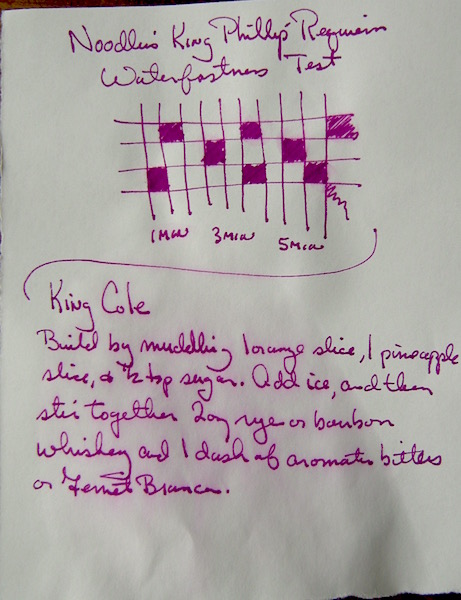 Noodler's King Phillip Requiem
Waterfastness Test
1 MIN 3 MIN 5 MIN
King Cole
Build by muddling 1 orange slice, 1 pineapple
slice, & ½ tsp sugar. Add ice, and then
stir together 2oz rye or bourbon
whiskey and 1 dash of aromatic bitters
or Fernet Branca.